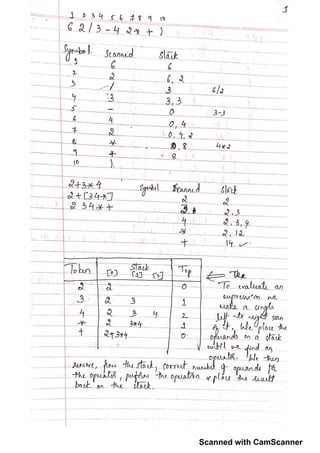 1
1 2 3 4 5 6 7 8 9 10
6 2 / 3 - 4 2 * + )
Symbol Scanned Stack
1 6 6
2. 2 6, 2
3 / 3 6/2
4 3 3, 3
5 - 0 3-3
6 4 0, 4
7 2 0, 4, 2
8 * 0, 8 4x2
9 + 8
10 )
2+3*4 Symbol Scanned Stack
2+[34*] 2 2
2 3 4 * + 3 2, 3
4 2, 3, 4
* 2, 12
+ 14
Token Stack Top
[0] [1] [2]
2 2 0
3 2 3 1
4 2 3 4 2
* 2 3*4 1
+ 2+3*4 0
To evaluate an
expression we
make a single
left-to-right scan
of it. We place the
operands on a stack
until we find an
operator. We then
remove, from the stack, correct number of operands for
the operator, perform the operation & place the result
back on the stack.
Scanned with CamScanner